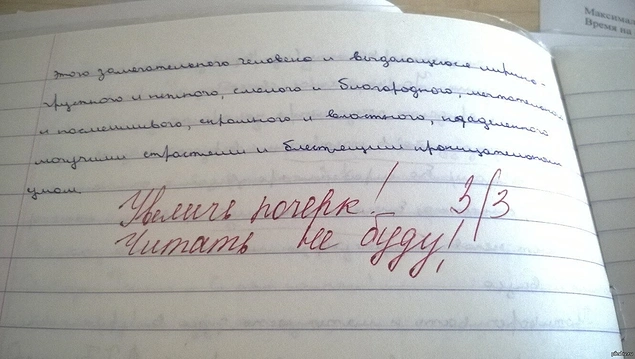 Максимал
Время на
этого замечательного человека и выдающегося лирика -
грустного и нежного, смелого и благородного, мечтательного
и насмешливого, скромного и властного, наделенного
могучими страстями и блестящим проницательным
умом.
Увеличь почерк! 3/3
Читать не буду!